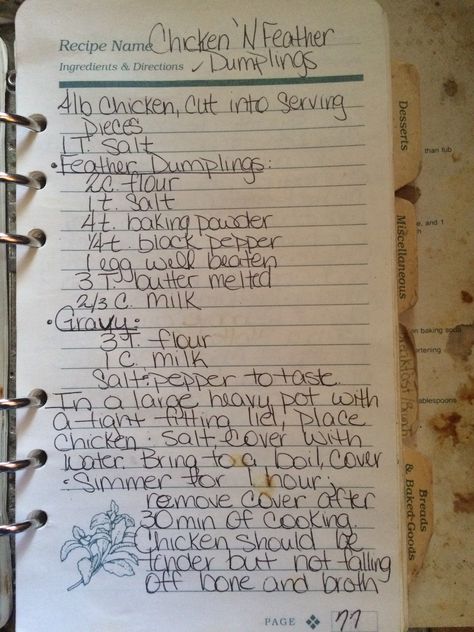 Recipe Name Chicken 'N Feather
Ingredients & Directions Dumplings
4lb chicken, cut into serving
pieces
1 T. salt
• Feather Dumplings:
2 C. flour
1 t. salt
4 t. baking powder
1/4 t. black pepper
1 egg well beaten
3 T. butter melted
2/3 C. milk
• Gravy:
3 T. flour
1 C. milk
Salt & pepper to taste.
In a large heavy pot with
a tight fitting lid, place
chicken & salt. Cover with
water. Bring to a boil, cover
& simmer for 1 hour;
remove cover after
30 min of cooking.
Chicken should be
tender but not falling
off bone and broth
PAGE 77
Desserts
Miscellaneous
Breads
& Baked-Goods
than tub
e, and 1
on baking soda
ortening
ablespoons